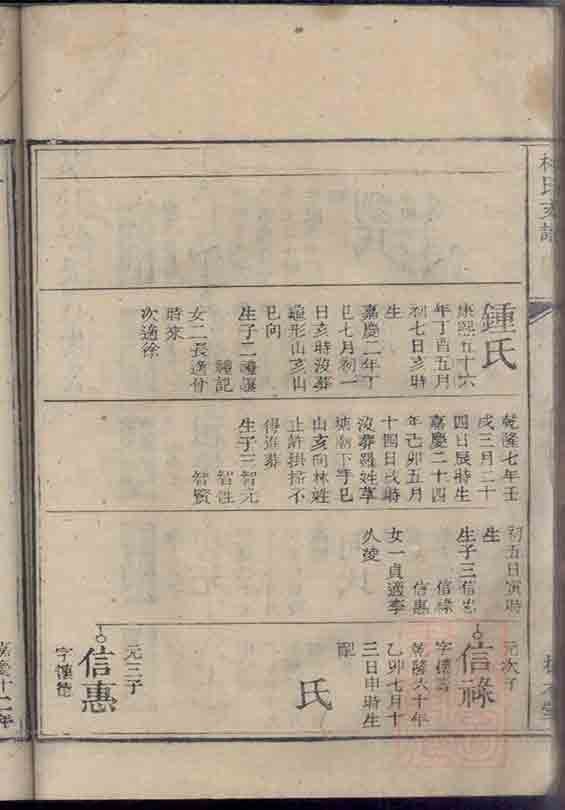 林氏支譜
鍾氏
康熙五十六
年丁酉五月
初七日亥時
生
嘉慶二年丁
巳七月初一
日亥時沒葬
形山亥山
巳向
生子二禮
禮記
女二長適
時來
次適徐
乾隆七年壬
戌三月二十
四日辰時生
嘉慶二十四
年己卯五月
十四日戌時
沒葬羅姓草
下手巳
山亥向林姓
止許掛掃不
得進葬
生子三智元
智性
智賢
初五日寅時
生
生子三信忠
信祿
信惠
女一貞適李
久
元次子
信祿
字懷
乾隆六十年
乙卯七月十
三日申時生
配
氏
元三子
信惠
字懷德
嘉慶十二年